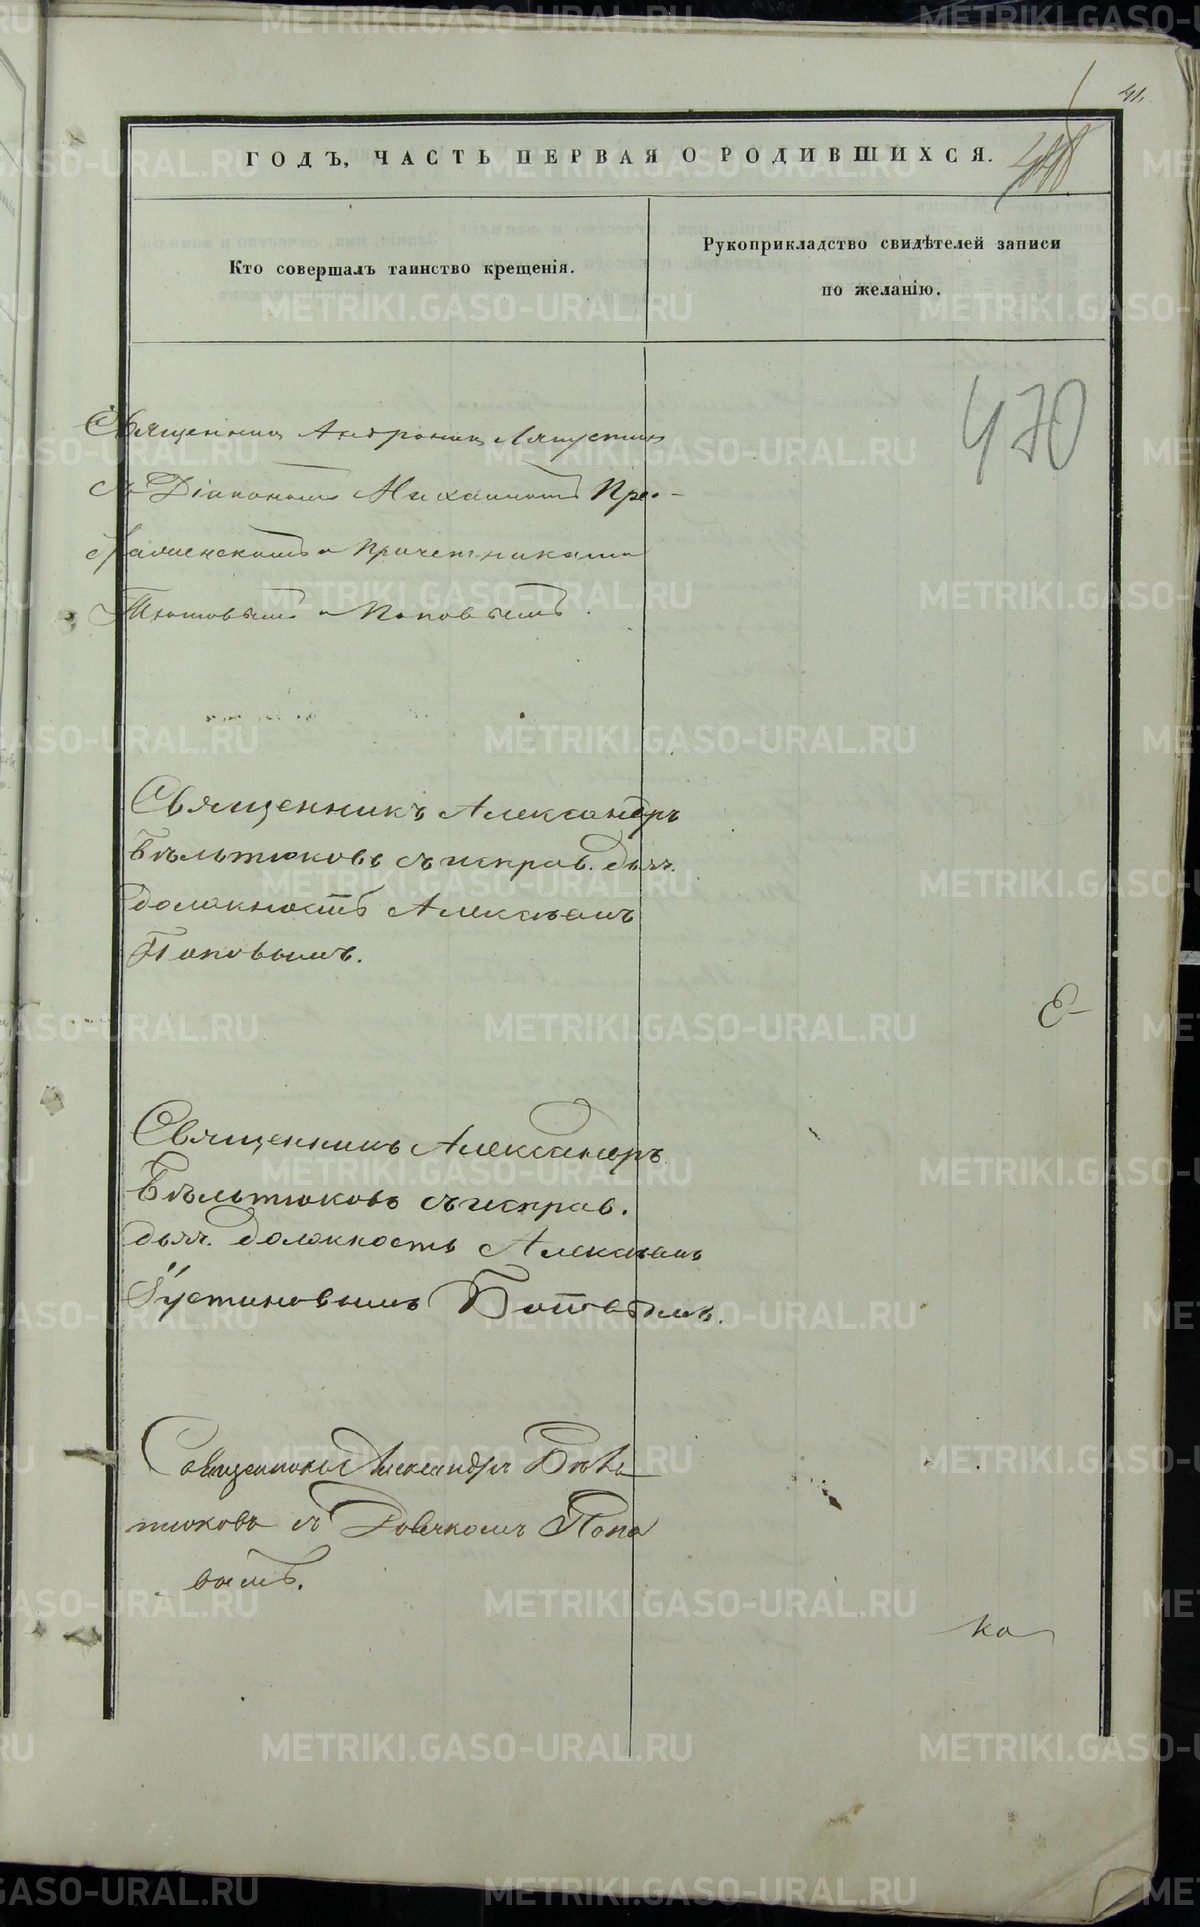 41.
ГОДЪ, ЧАСТЬ ПЕРВАЯ О РОДИВШИХСЯ.
Кто совершалъ таинство крещенія.
Рукоприкладство свидѣтелей записи
по желанію.
470
Священникъ Андроникъ Ляпустинъ
съ Діакономъ Михаиломъ Пре-
и Причетниками
и Поповымъ.
Священникъ Александръ
Бѣльтюковъ съ исправ. дьяч.
должность Алексѣемъ
Поповымъ.
Священникъ Александръ
Бѣльтюковъ съ исправ.
дьяч. должность Алексѣемъ
Іустиновымъ Поповымъ.
Священникъ Александръ Бѣль
тюковъ съ Дьячкомъ Попо
вымъ.
ка
METRIKI.GASO-URAL.RU